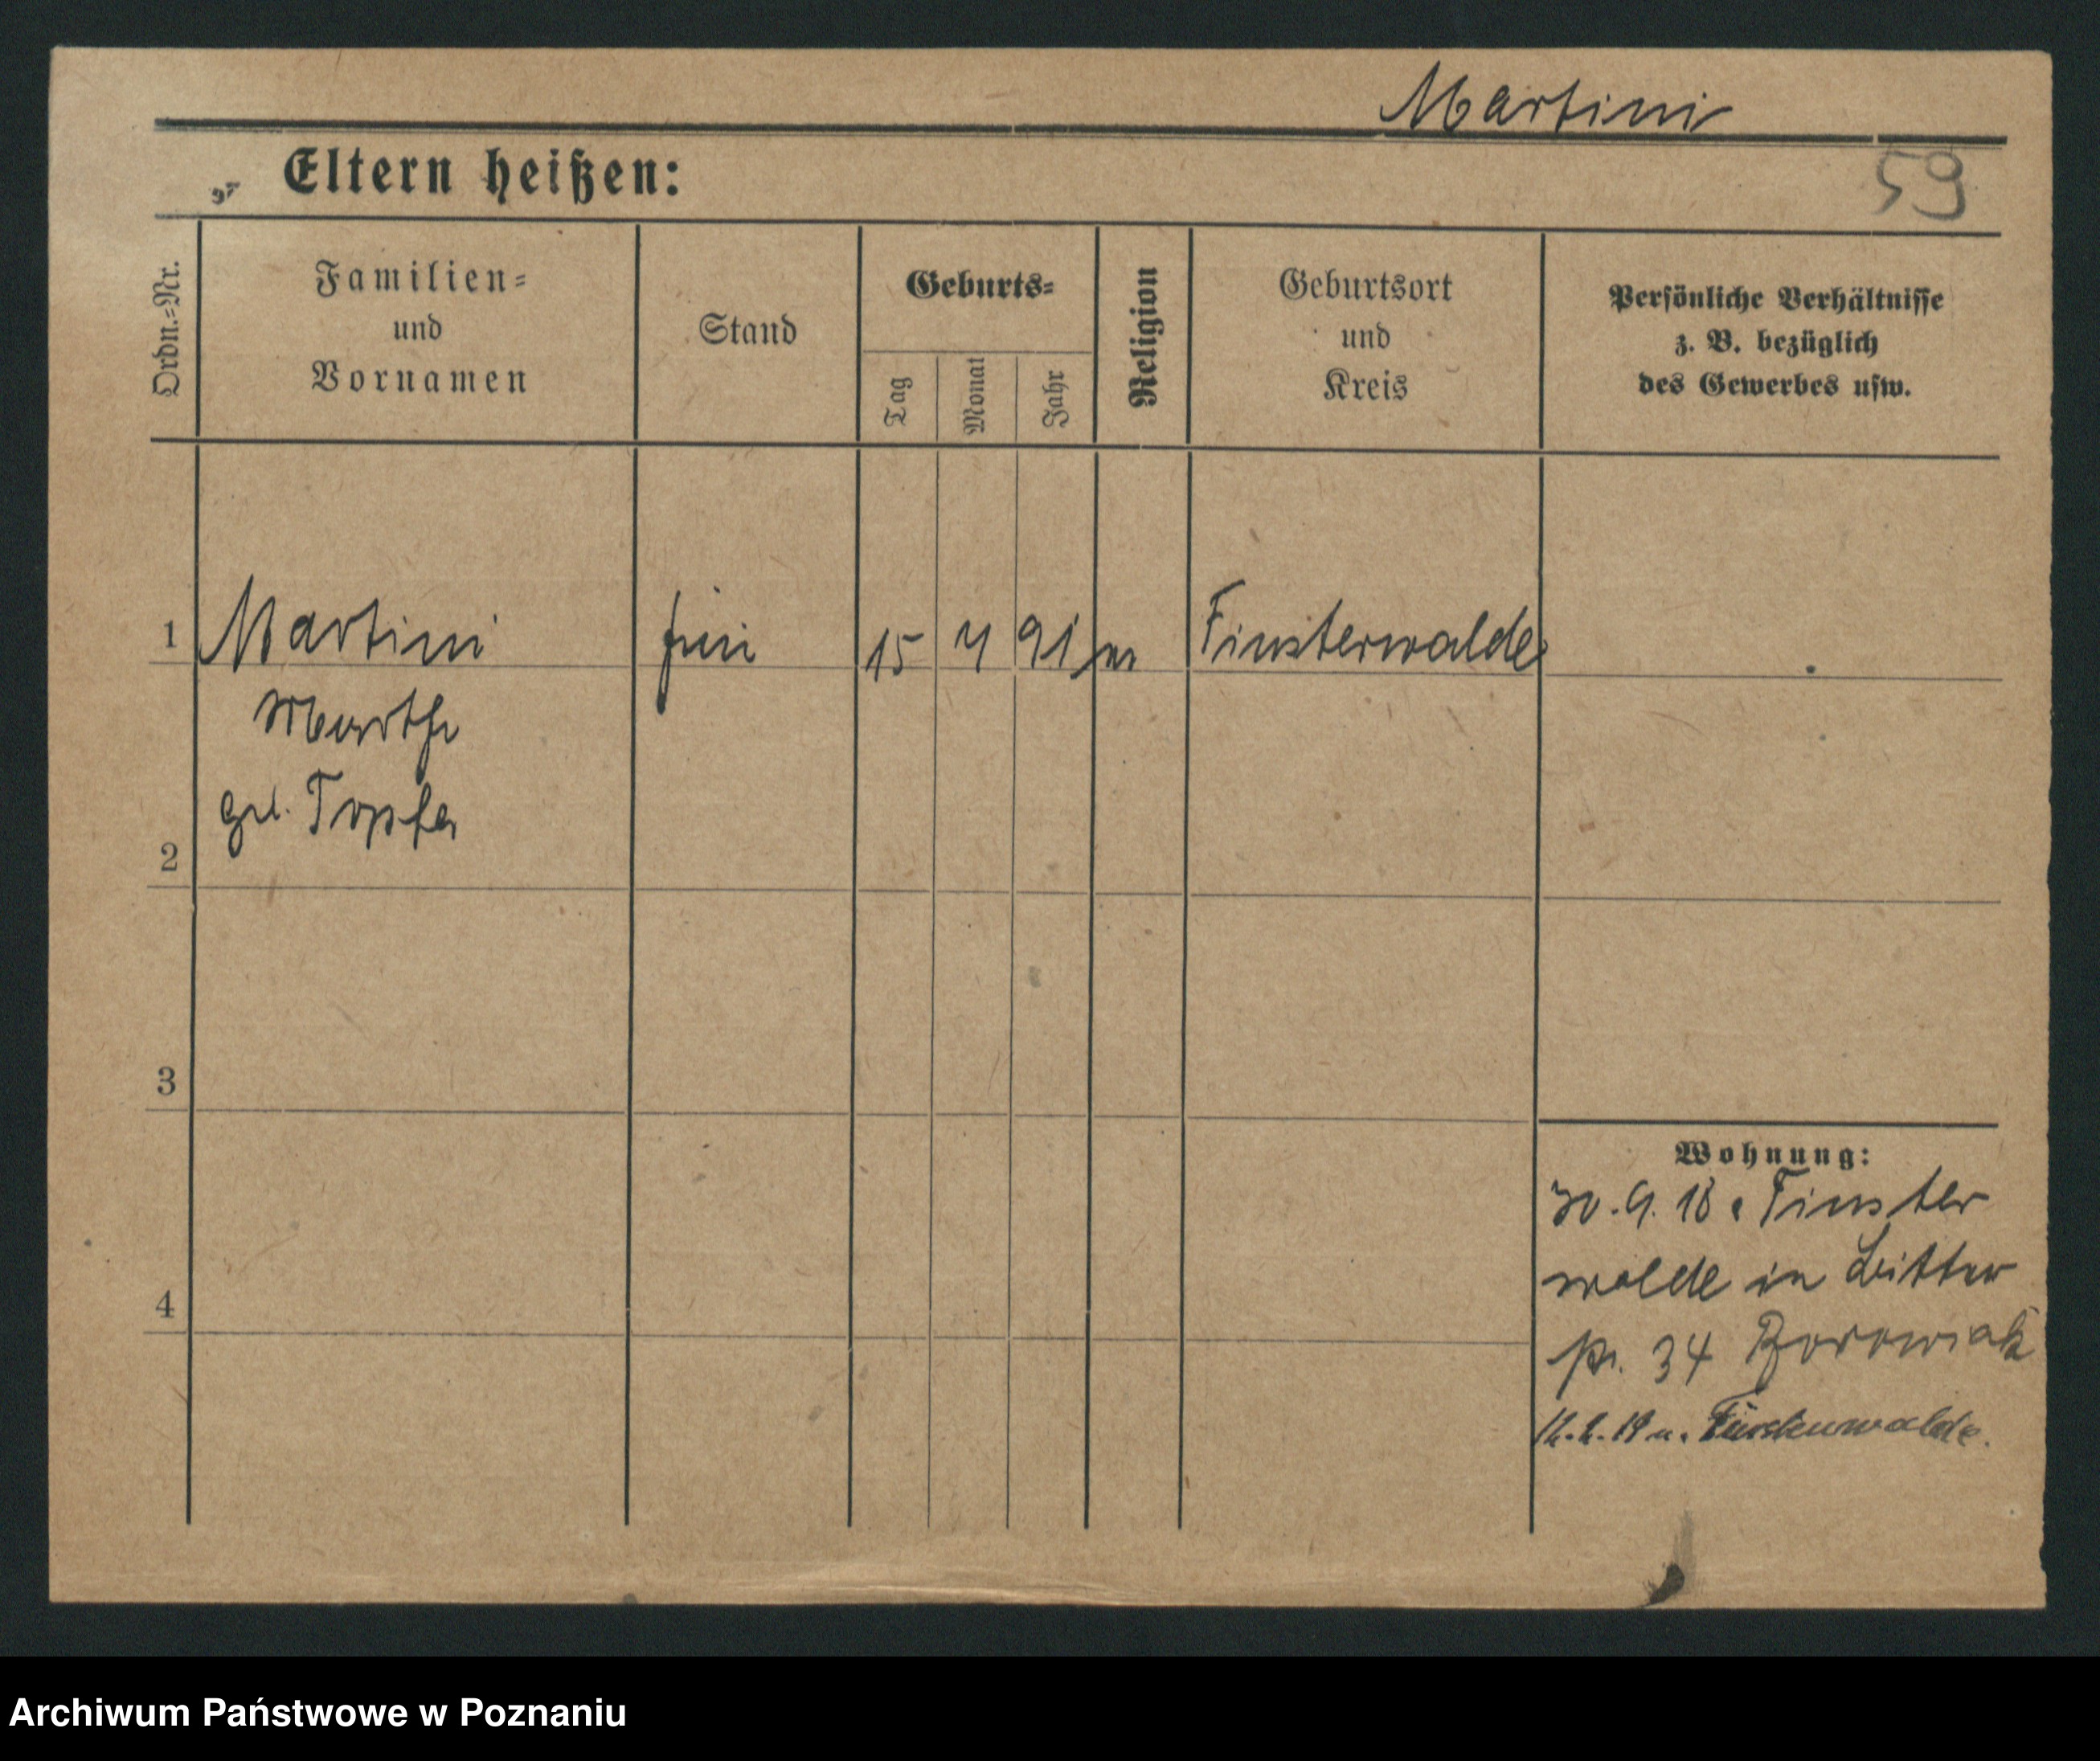 Martini
59
Eltern heißen:
Ordn.=Nr.
Familien=
und
Vornamen
Stand
Geburts=
Tag
Monat
Jahr
Religion
Geburtsort
und
Kreis
Persönliche Verhältnisse
z. B. bezüglich
des Gewerbes usw.
1 Martini 15 4 91 Finsterwalde
Martha
geb. Töpfer
2
3
Wohnung:
30. 9. 18 Finster
walde in Bitter
4
34 Borowiak
12.2.19 n.
Archiwum Państwowe w Poznaniu